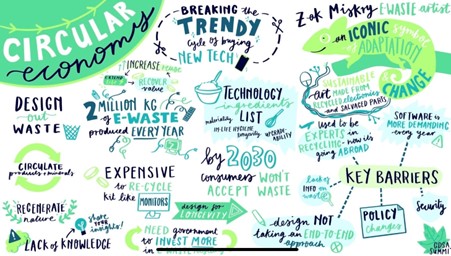 CIRCULAR
economy
DESIGN
out
WASTE
CIRCULATE
products & materials
REGENERATE
nature
Share
your
insights!
LACK of KNOWLEDGE
INCREASE
EXTEND
RECOVER
value
2
MILLION KG
of E-WASTE
produced EVERY YEAR
EXPENSIVE
to RE-CYCLE
kit like
MONITORS
design for
LONGEVITY
NEED government
to INVEST MORE
in
BREAKING the
TRENDY
cycle of buying
NEW TECH
TECHNOLOGY
ingredients
LIST
materiality,
longevity,
by 2030
consumers WON'T
ACCEPT WASTE
design NOT
taking an END-TO-END
approach
Zak Mistry E-WASTE artist
an ICONIC symbol
of ADAPTATION
& CHANGE
SUSTAINABLE
art MADE FROM
RECYCLED electronics
and SALVAGED PARTS
used to be
EXPERTS in
RECYCLING - now it's
going ABROAD
SOFTWARE is
MORE DEMANDING
every year
lack of
INFO on
WASTE
KEY BARRIERS
POLICY
changes
security
GDSA
SUMMIT